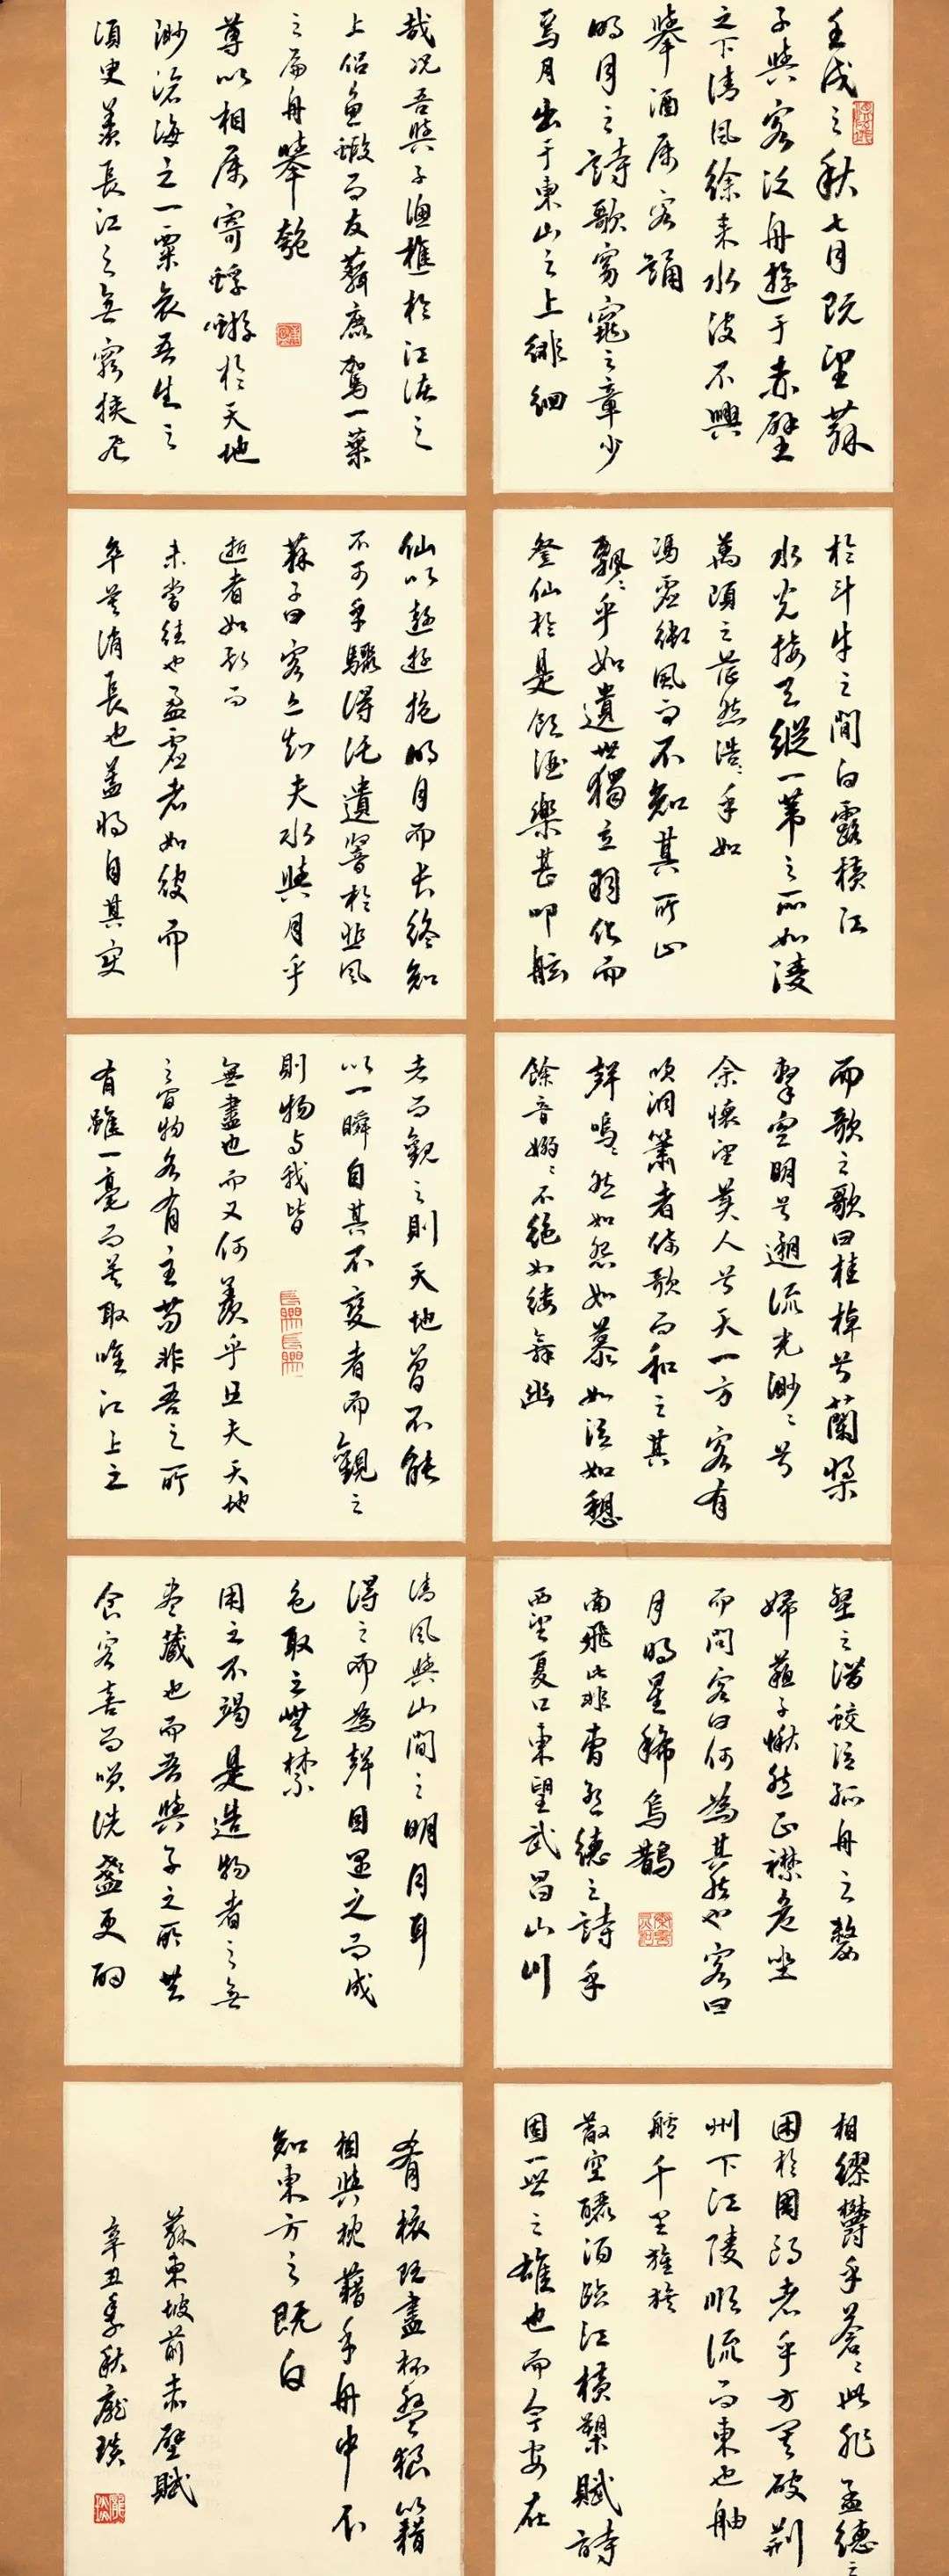 壬戌之秋七月既望蘇
子與客泛舟遊于赤壁
之下清風徐来水波不興
舉酒属客誦
明月之詩歌窈窕之章少
焉月出于東山之上徘徊
於斗牛之間白露橫江
水光接天縱一葦之所如淩
萬頃之茫然浩〻乎如
馮虚御風而不知其所止
飄〻乎如遺世獨立羽化而
登仙於是飲酒樂甚叩舷
而歌之歌曰桂棹兮蘭槳
擊空明兮遡流光渺〻兮
余懷望美人兮天一方客有
吹洞簫者倚歌而和之其
聲嗚〻然如怨如慕如泣如愬
餘音嫋〻不絕如縷舞幽
壑之潛蛟泣孤舟之嫠
婦蘇子愀然正襟危坐
而問客曰何為其然也客曰
月明星稀烏鵲
南飛此非曹孟德之詩乎
西望夏口東望武昌山川
相繆鬱乎蒼〻此非孟德之
困於周郎者乎方其破荊
州下江陵順流而東也舳
艫千里旌旗
蔽空釃酒臨江橫槊賦詩
固一世之雄也而今安在
哉況吾與子漁樵於江渚之
上侶魚蝦而友麋鹿駕一葉
之扁舟舉匏
尊以相属寄蜉蝣於天地
渺滄海之一粟哀吾生之
須臾羨長江之無窮挾飛
仙以遨遊抱明月而長終知
不可乎驟得託遺響於悲風
蘇子曰客亦知夫水與月乎
逝者如斯而
未嘗往也盈虚者如彼而
卒莫消長也蓋將自其變
者而觀之則天地曾不能
以一瞬自其不變者而觀之
則物与我皆
無盡也而又何羨乎且夫天地
之間物各有主苟非吾之所
有雖一毫而莫取唯江上之
清風與山間之明月耳
得之而為聲目遇之而成
色取之無禁
用之不竭是造物者之無
盡藏也而吾與子之所共
食客喜而笑洗盞更酌
肴核既盡杯盤狼籍
相與枕藉乎舟中不
知東方之既白
蘇東坡前赤壁賦
辛丑季秋龐瑱